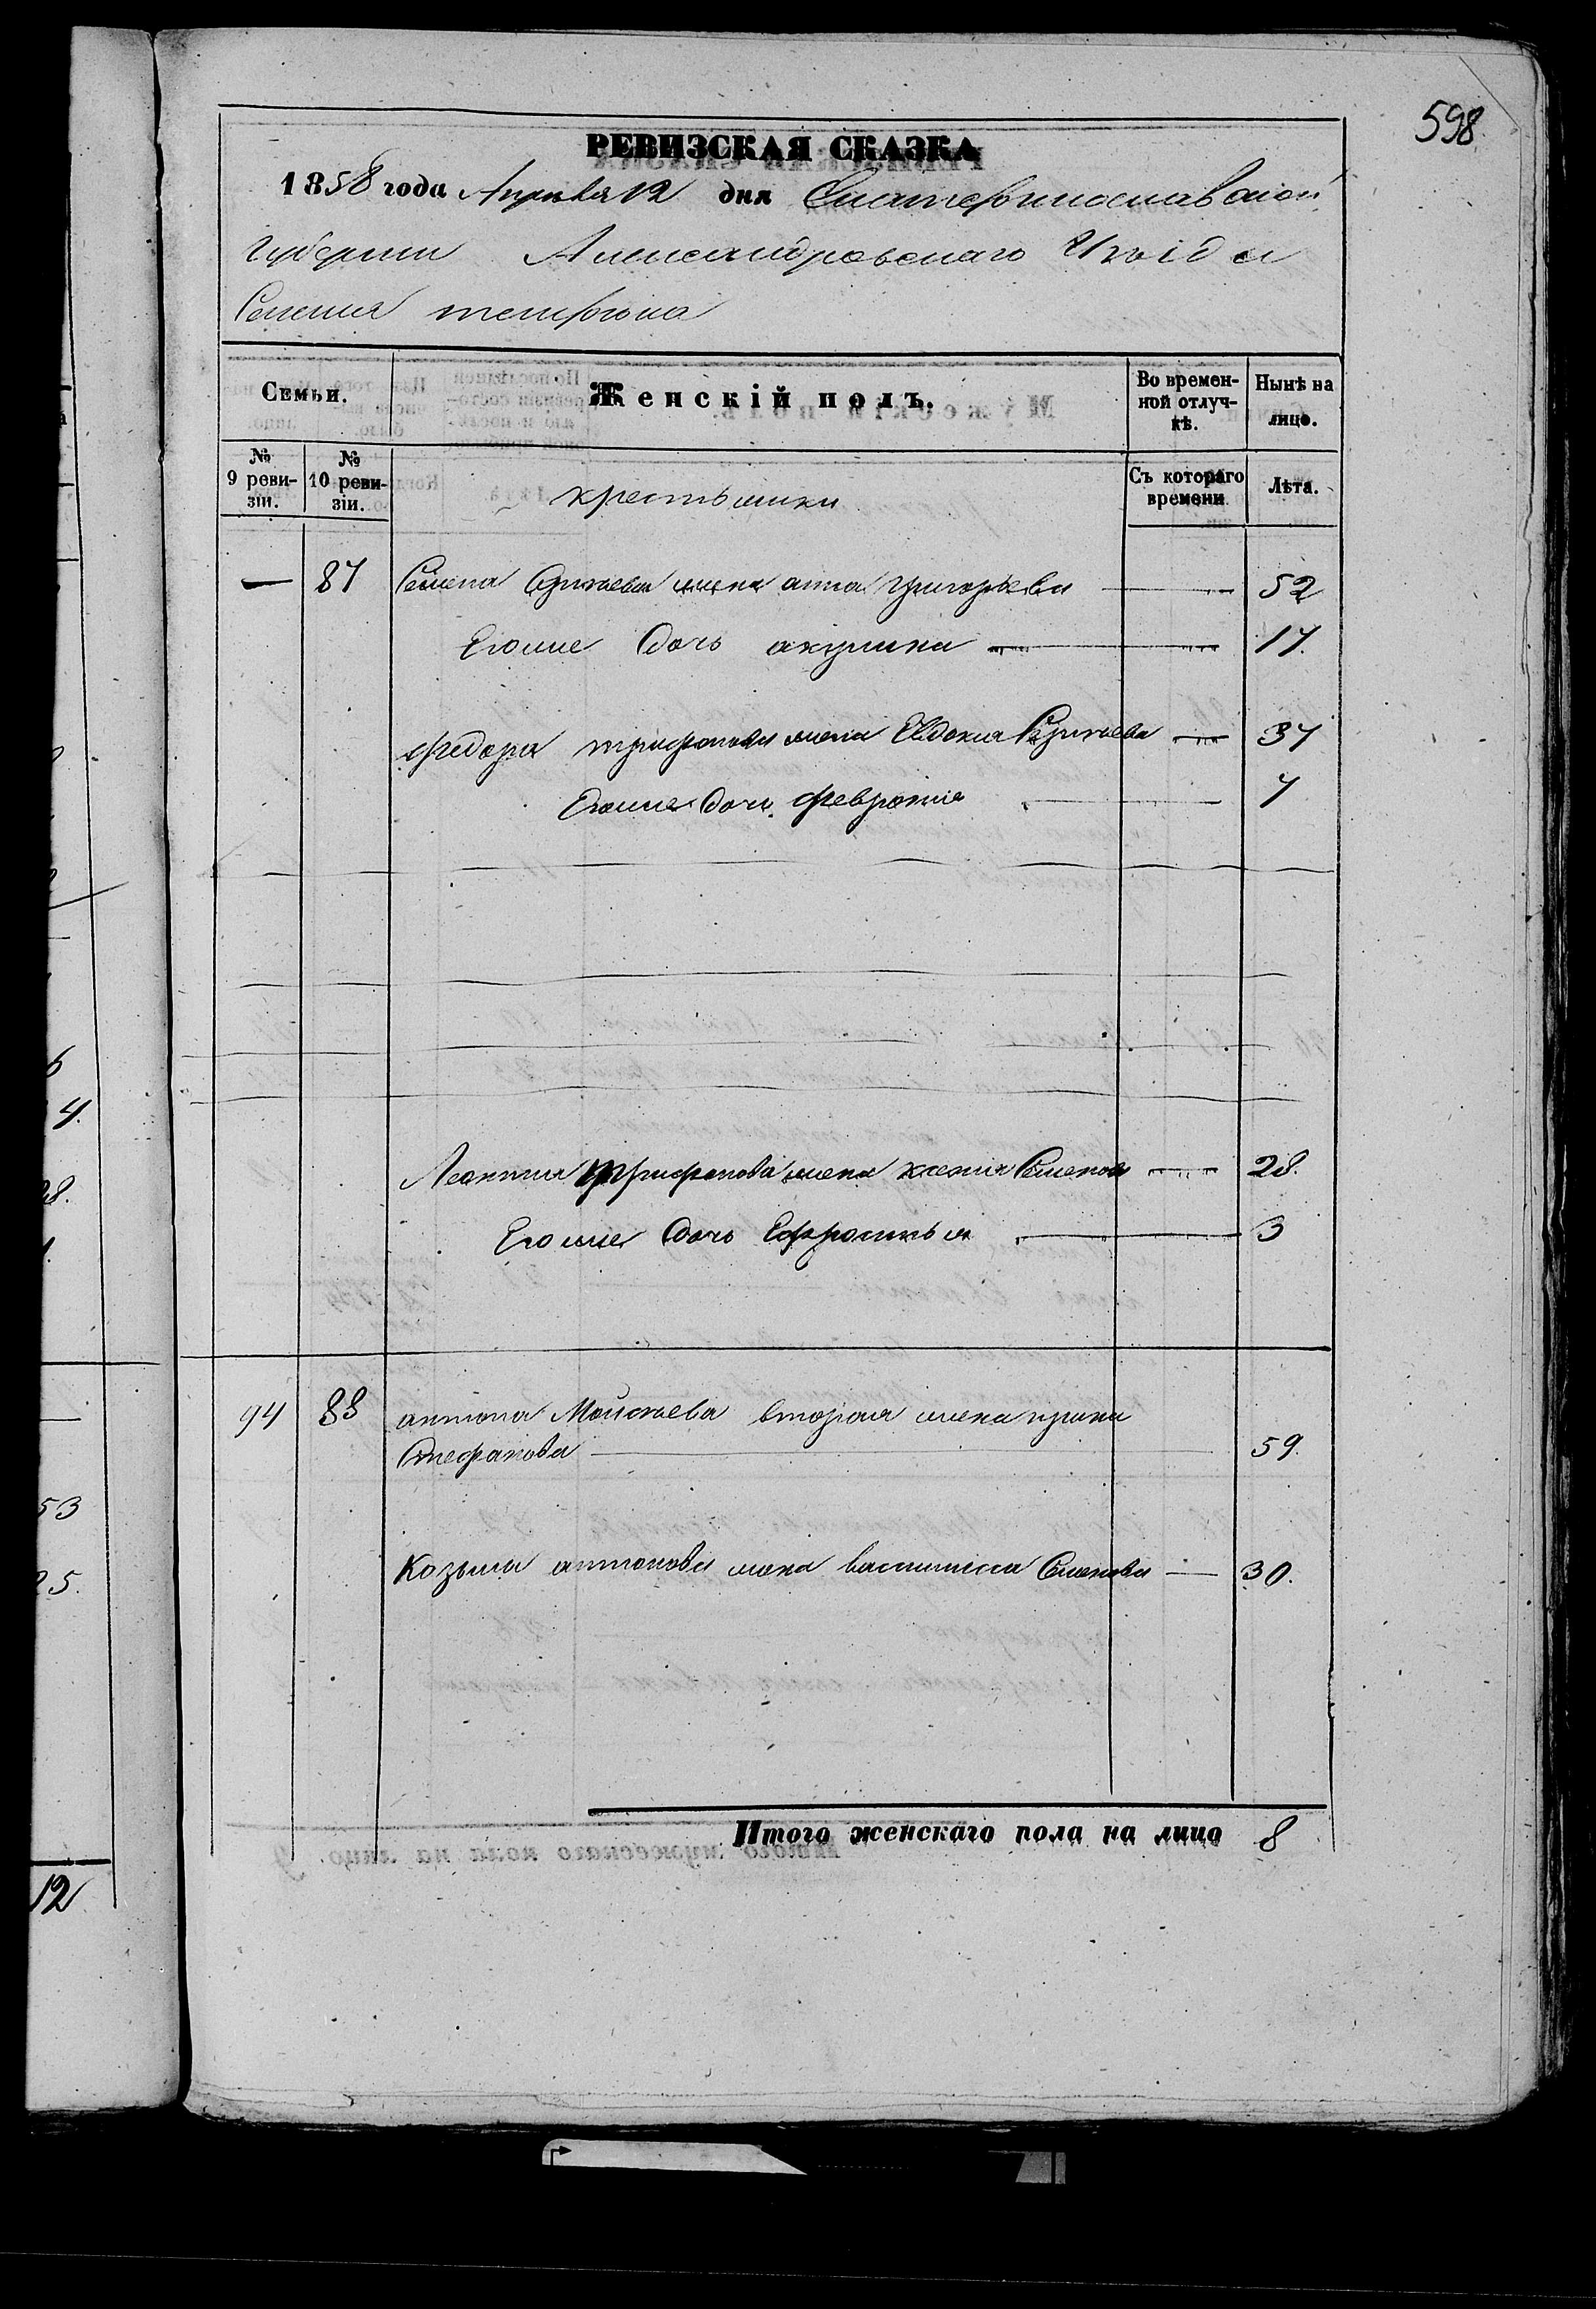 598
РЕВИЗСКАЯ СКАЗКА
1858 года Апреля 12 дня Екатеринославской
Губернии Александровскаго Уезда
Селения
Семьи.
Женскій полъ.
Во времен-
ной отлуч-
кѣ.
Нынѣ на
лицо.
№
9 реви-
зіи.
№
10 реви-
зіи.
крестьянки
Съ котораго
времени
Лѣта.
— 87 Семена жена анна григорьева — 52
Егоже дочь акулина — 17.
федора трифонова жена Евдокия — 37
Егоже дочь февронія — 7
Леонтия Трифонова жена ксения Семенова — 28.
Егоже дочь Ефросинья — 3
94 88 антона Мойсеева вторая жена ирина
Стефанова — 59.
Козьми антонова жена василисса Семенова — 30.
Итого женскаго пола на лицо 8
4.
28.
53
25.
12